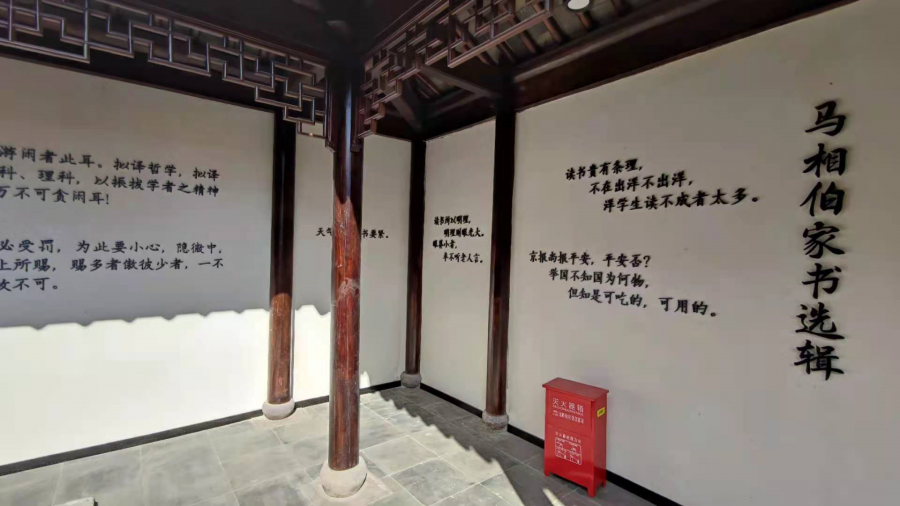 马相伯家书选辑
读书贵有条理，
不在出洋不出洋，
洋学生读不成者太多。
京报尚报平安，平安否？
举国不知国为何物，
但知是可吃的，可用的。
读书所以明理，
明理则眼光大。
眼界小者，
年不听老人言。
天气
书要紧。
游闲者此耳。拟译哲学，拟译
科、理科，以振拔学者之精神
万不可贪闲耳！
必受罚，为此要小心，隐微中，
上所赐，赐多者傲彼少者，一不
不可。
灭火器箱